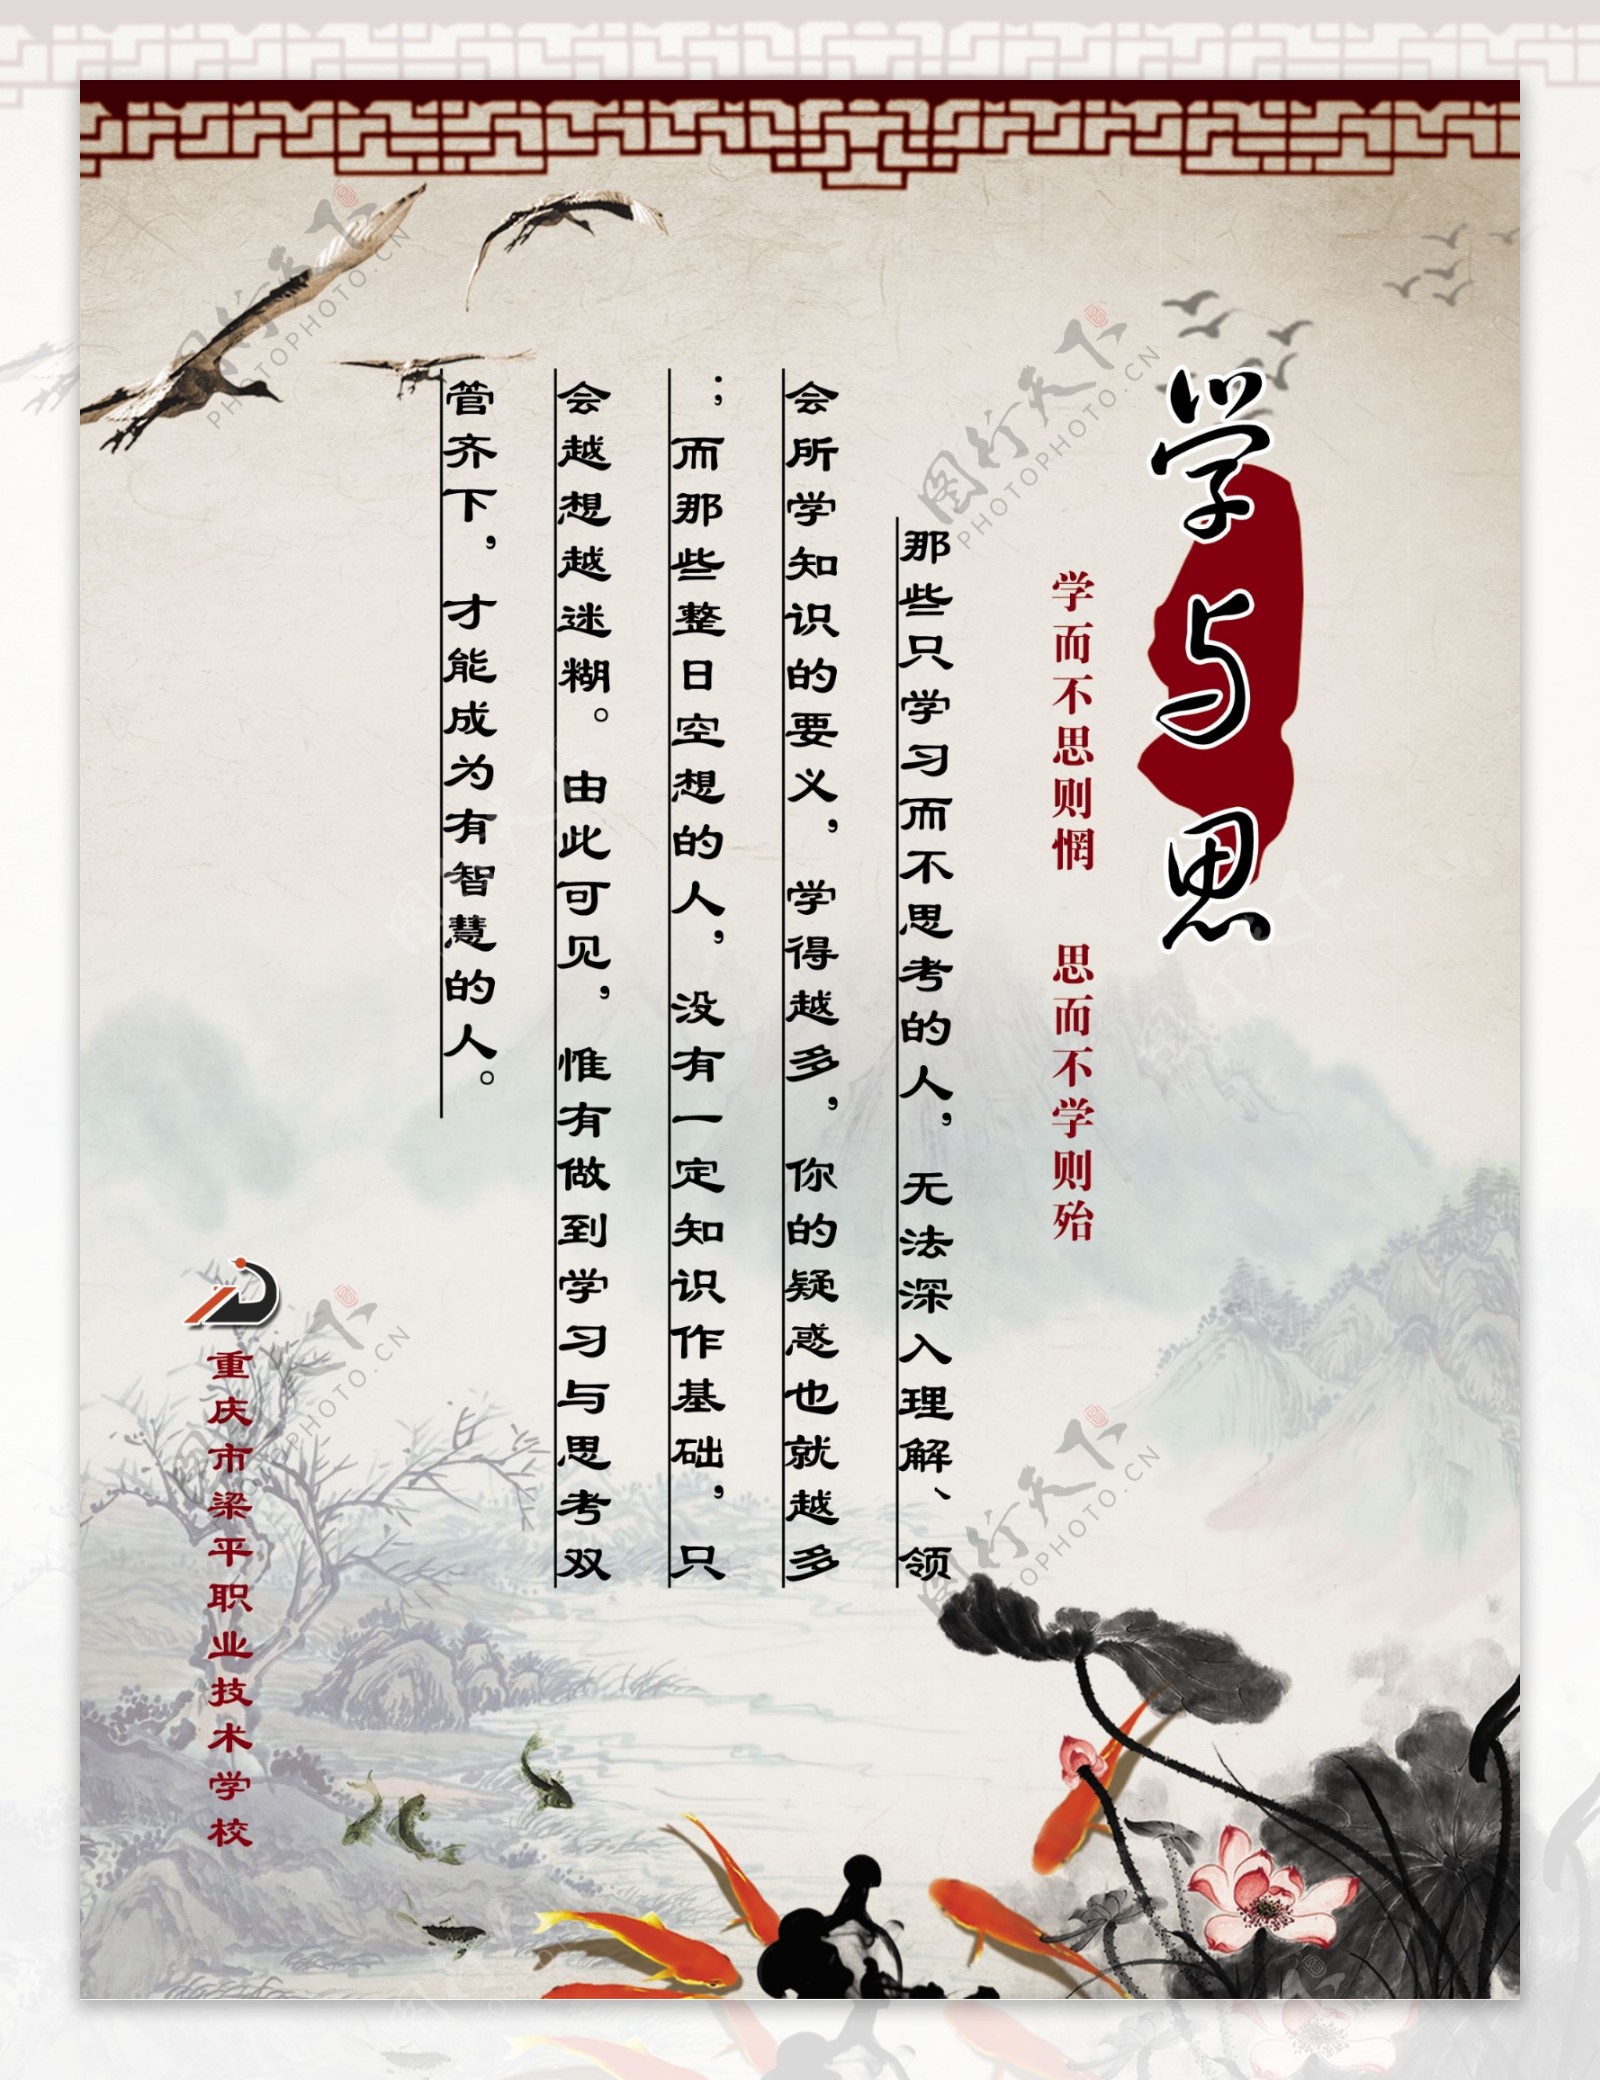 学与思
学而不思则惘 思而不学则殆
那些只学习而不思考的人，无法深入理解、领
会所学知识的要义，学得越多，你的疑惑也就越多
；而那些整日空想的人，没有一定知识作基础，只
会越想越迷糊。由此可见，惟有做到学习与思考双
管齐下，才能成为有智慧的人。
重庆市梁平职业技术学校
图行天下
PHOTOPHOTO.CN
图行天下
PHOTOPHOTO.CN
图行天下
PHOTOPHOTO.CN
图行天下
PHOTOPHOTO.CN